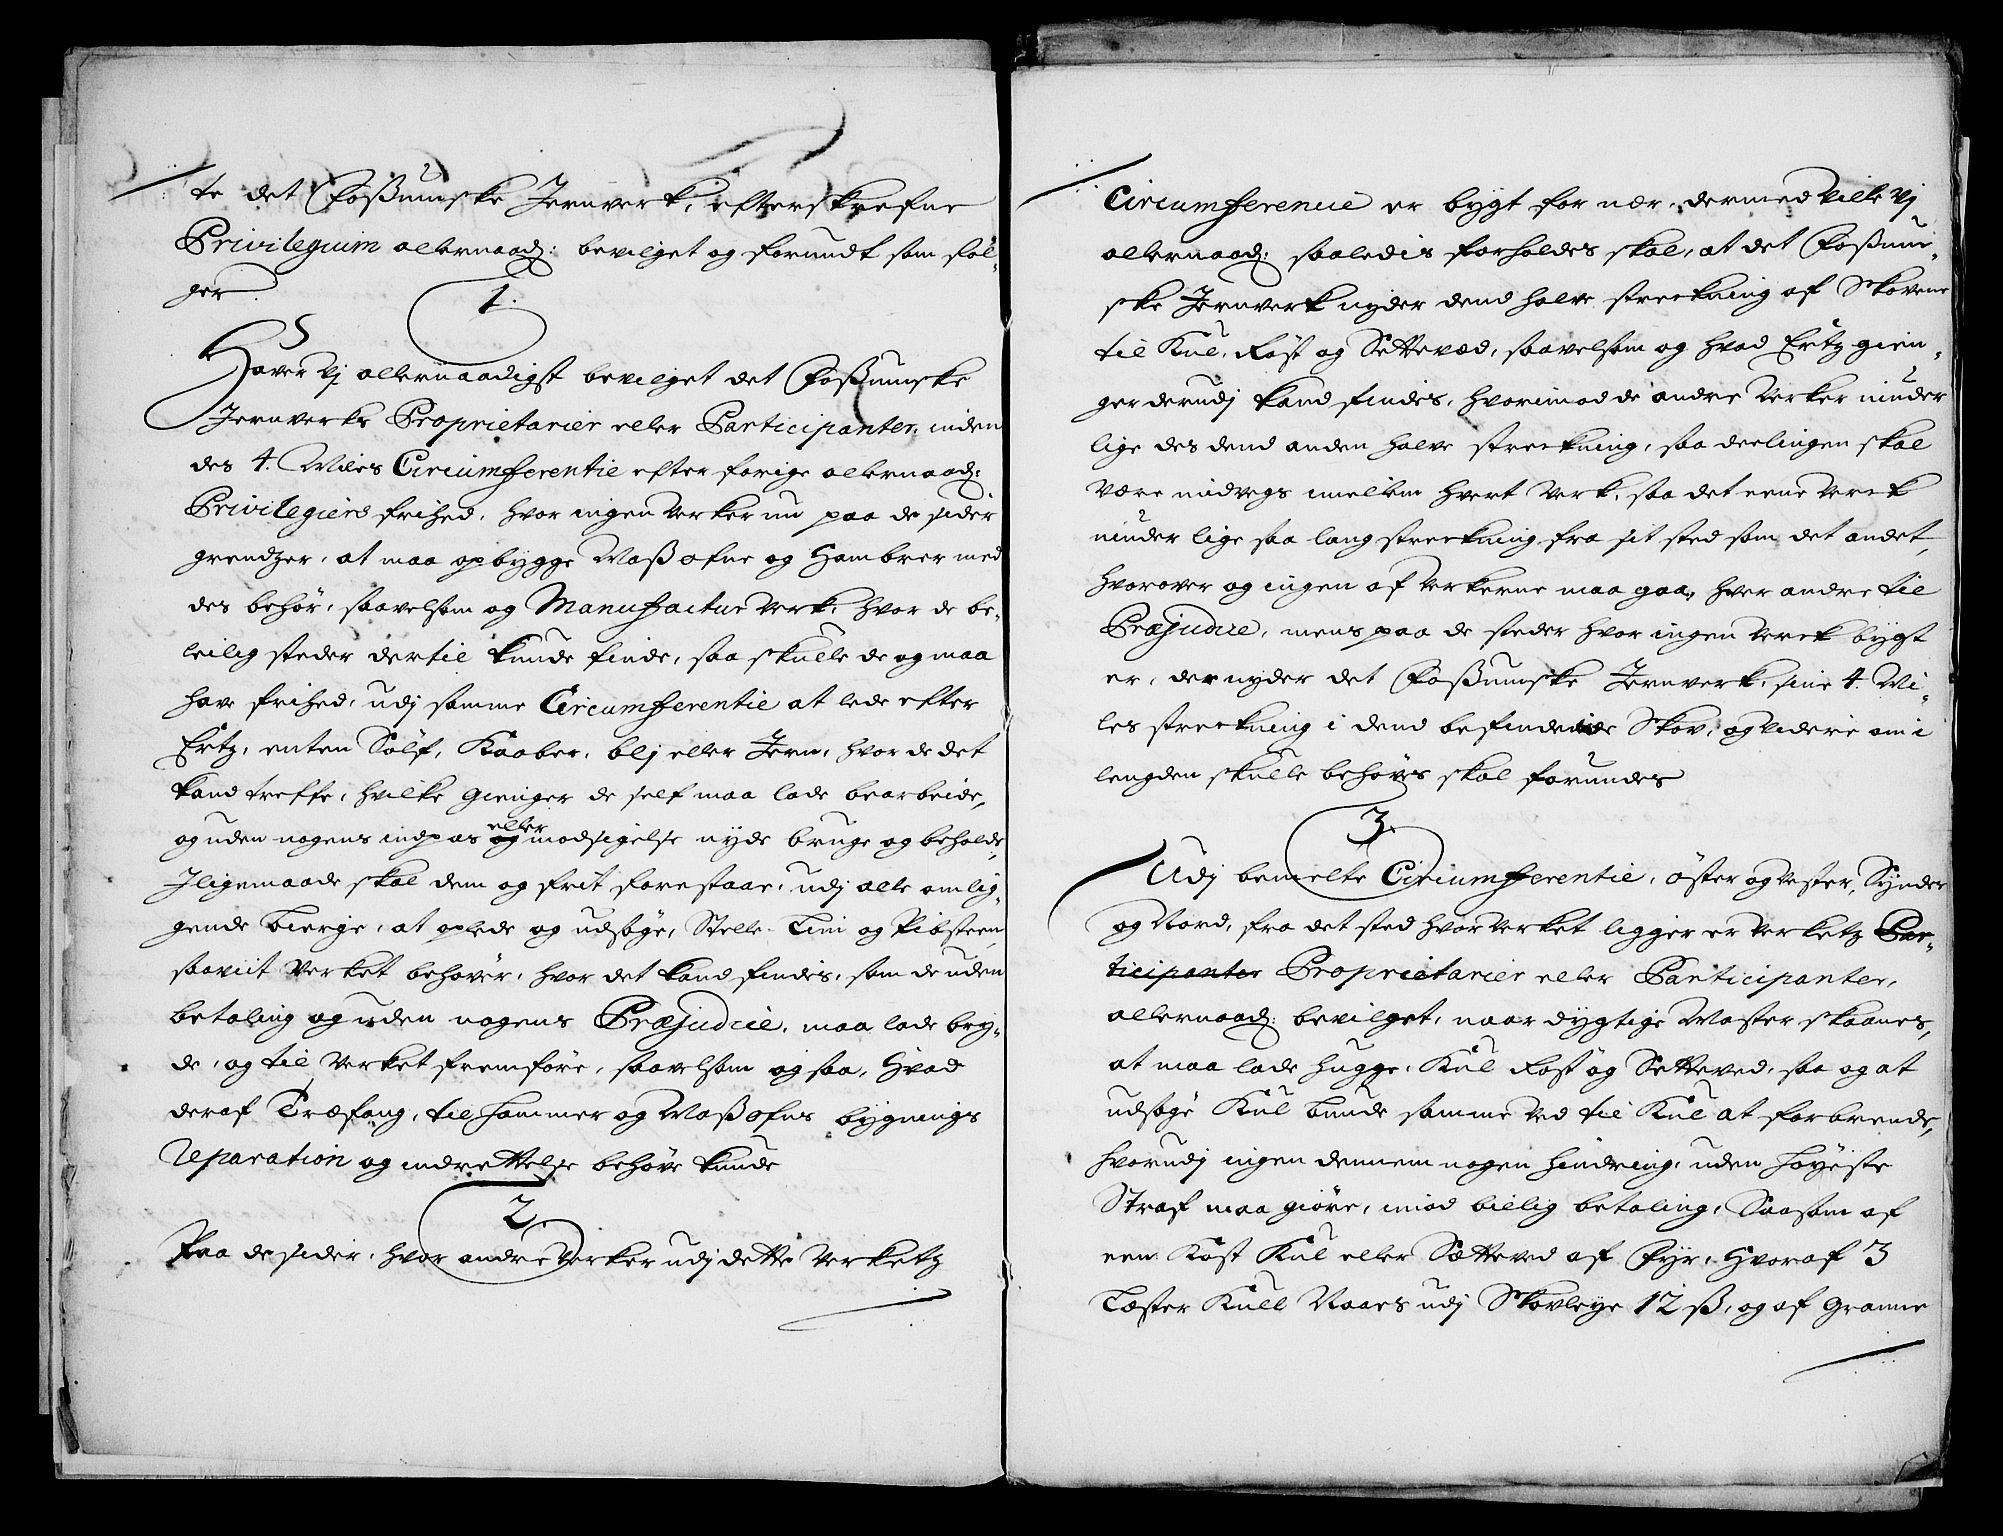 te det Foßumske Jernverk, efterskrefne
Privilegium allernaad: bevilget og forundt som føl-
ger.
1.
Hafver Vj allernaadigst bevilget det Foßumske
Jernverks Proprietarier eller Participanter, inden
des 4. Miles Circumfferentie efter forige allernaad:
Privilegiers frihed, hvor ingen Verker nu paa de sider
grendzer, at maa opbygge Maßofne og Hambrer med
des behør, saavelsom og Manufactur Verk, hvor de be-
leilig steder dertil kunde finde, saa skulle de og maa
have frihed, udj samme Circumfferentie at lede efter
Ertz, enten Sølf, Kaaber, blj eller Jern, hvor de det
kand treffe, hvilke Gienger de self maa lade bearbeide,
og uden nogens indpas og eller modsigelse nyde bruge og beholde,
Jligemaade skal dem og frit forestaae, udj alle omlig-
gende bierge, at oplede og udsøge, Stelle- Tini og Pibsteen,
saaviit Verket behøver, hvor det kand findis, som de uden
betaling og uden nogens Præjudice, maa lade bry-
de, og til Verket fremføre, saavelsom og saa, hvad
deraf Træfang, til hammer og Maßofns bygnings
reparation og indrettelse behøve kunde
2.
Paa de sider, hvor andre Verker udj dette Verketz
Circumfferentie er bygt for nær, dermed ville Vj
allernaad: saaledis forholdes skal, at det Foßum-
ske Jernverk nyder dend halve streckning af Skovene
til Kul, Røst og Setteved, saavelsom og hvad Ertz gien-
ger derudj kand findis, hvorimod de andre Verker niuder
lige des dend anden halve streckning, saa deelingen skal
være midvegs imellem hvert Verk, saa det eene Verk
niuder lige saa lang streckning fra sit sted som det andet,
hvorover og ingen af Verkerne maa gaa, hver andre til
Præjudice, mens paa de steder hvor ingen Verk bygt
er, der nyder det Foßumske Jernverk, sine 4. Mi-
les streckning i dend befindende Skov, og videre om i
lengden skulle behøves skal forundes
3.
Udj bemelte Circumfferentie, öster og Vester, Synder
og Nord, fra det sted hvor Verket ligger er Verketz Par-
ticipanter Proprietarier eller Participanter,
allernaad: bevilget, naar dygtige Master skaanes,
at maa lade hugge, Kul Røst og Setteved, saa og at
udsøge Kul bunde samme Ved til Kul at forbrende,
hvorudj ingen dennem nogen hindring, uden høyeste
Straf maa giøre, imod billig betaling, Saasom af
een Røst Kul eller Sætteved af Fyr, hvoraf 3
Læster Kull Naaes udj Skovleye 12 ß, og af Granne